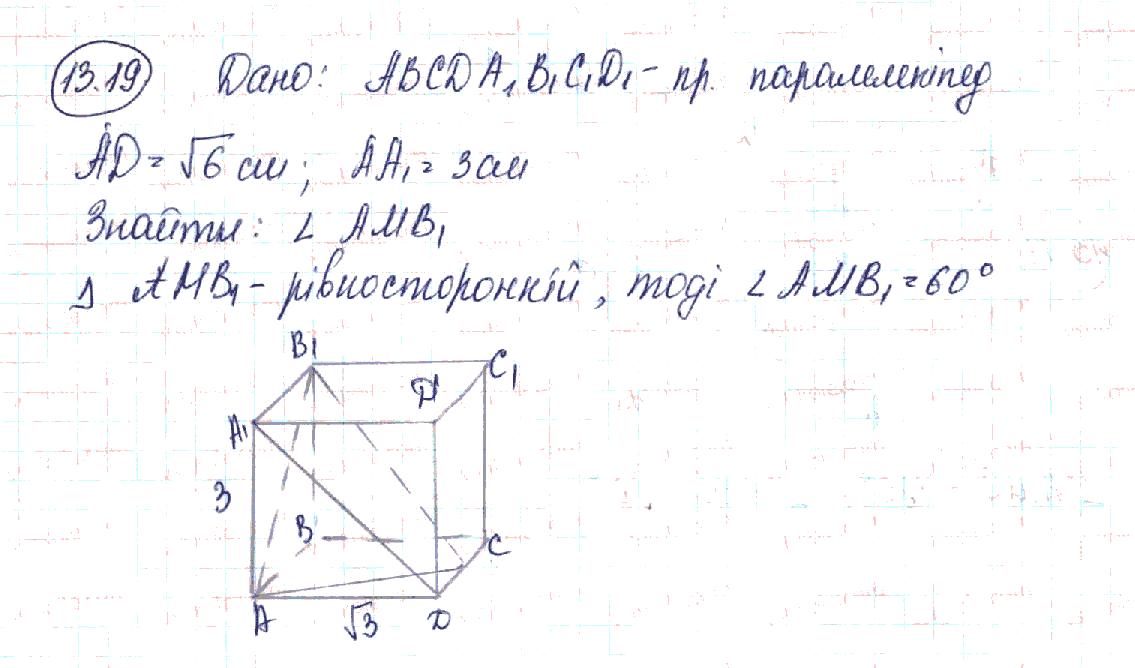 13.19 Дано: ABCDA₁B₁C₁D₁ - пр. паралелепіпед
AD = √6 см; AA₁ = 3 см
Знайти: ∠ AMB₁
Δ AMB₁ - рівносторонній, тоді ∠ AMB₁ = 60°
B₁
C₁
D¹
A₁
3
B
C
A
√3
D